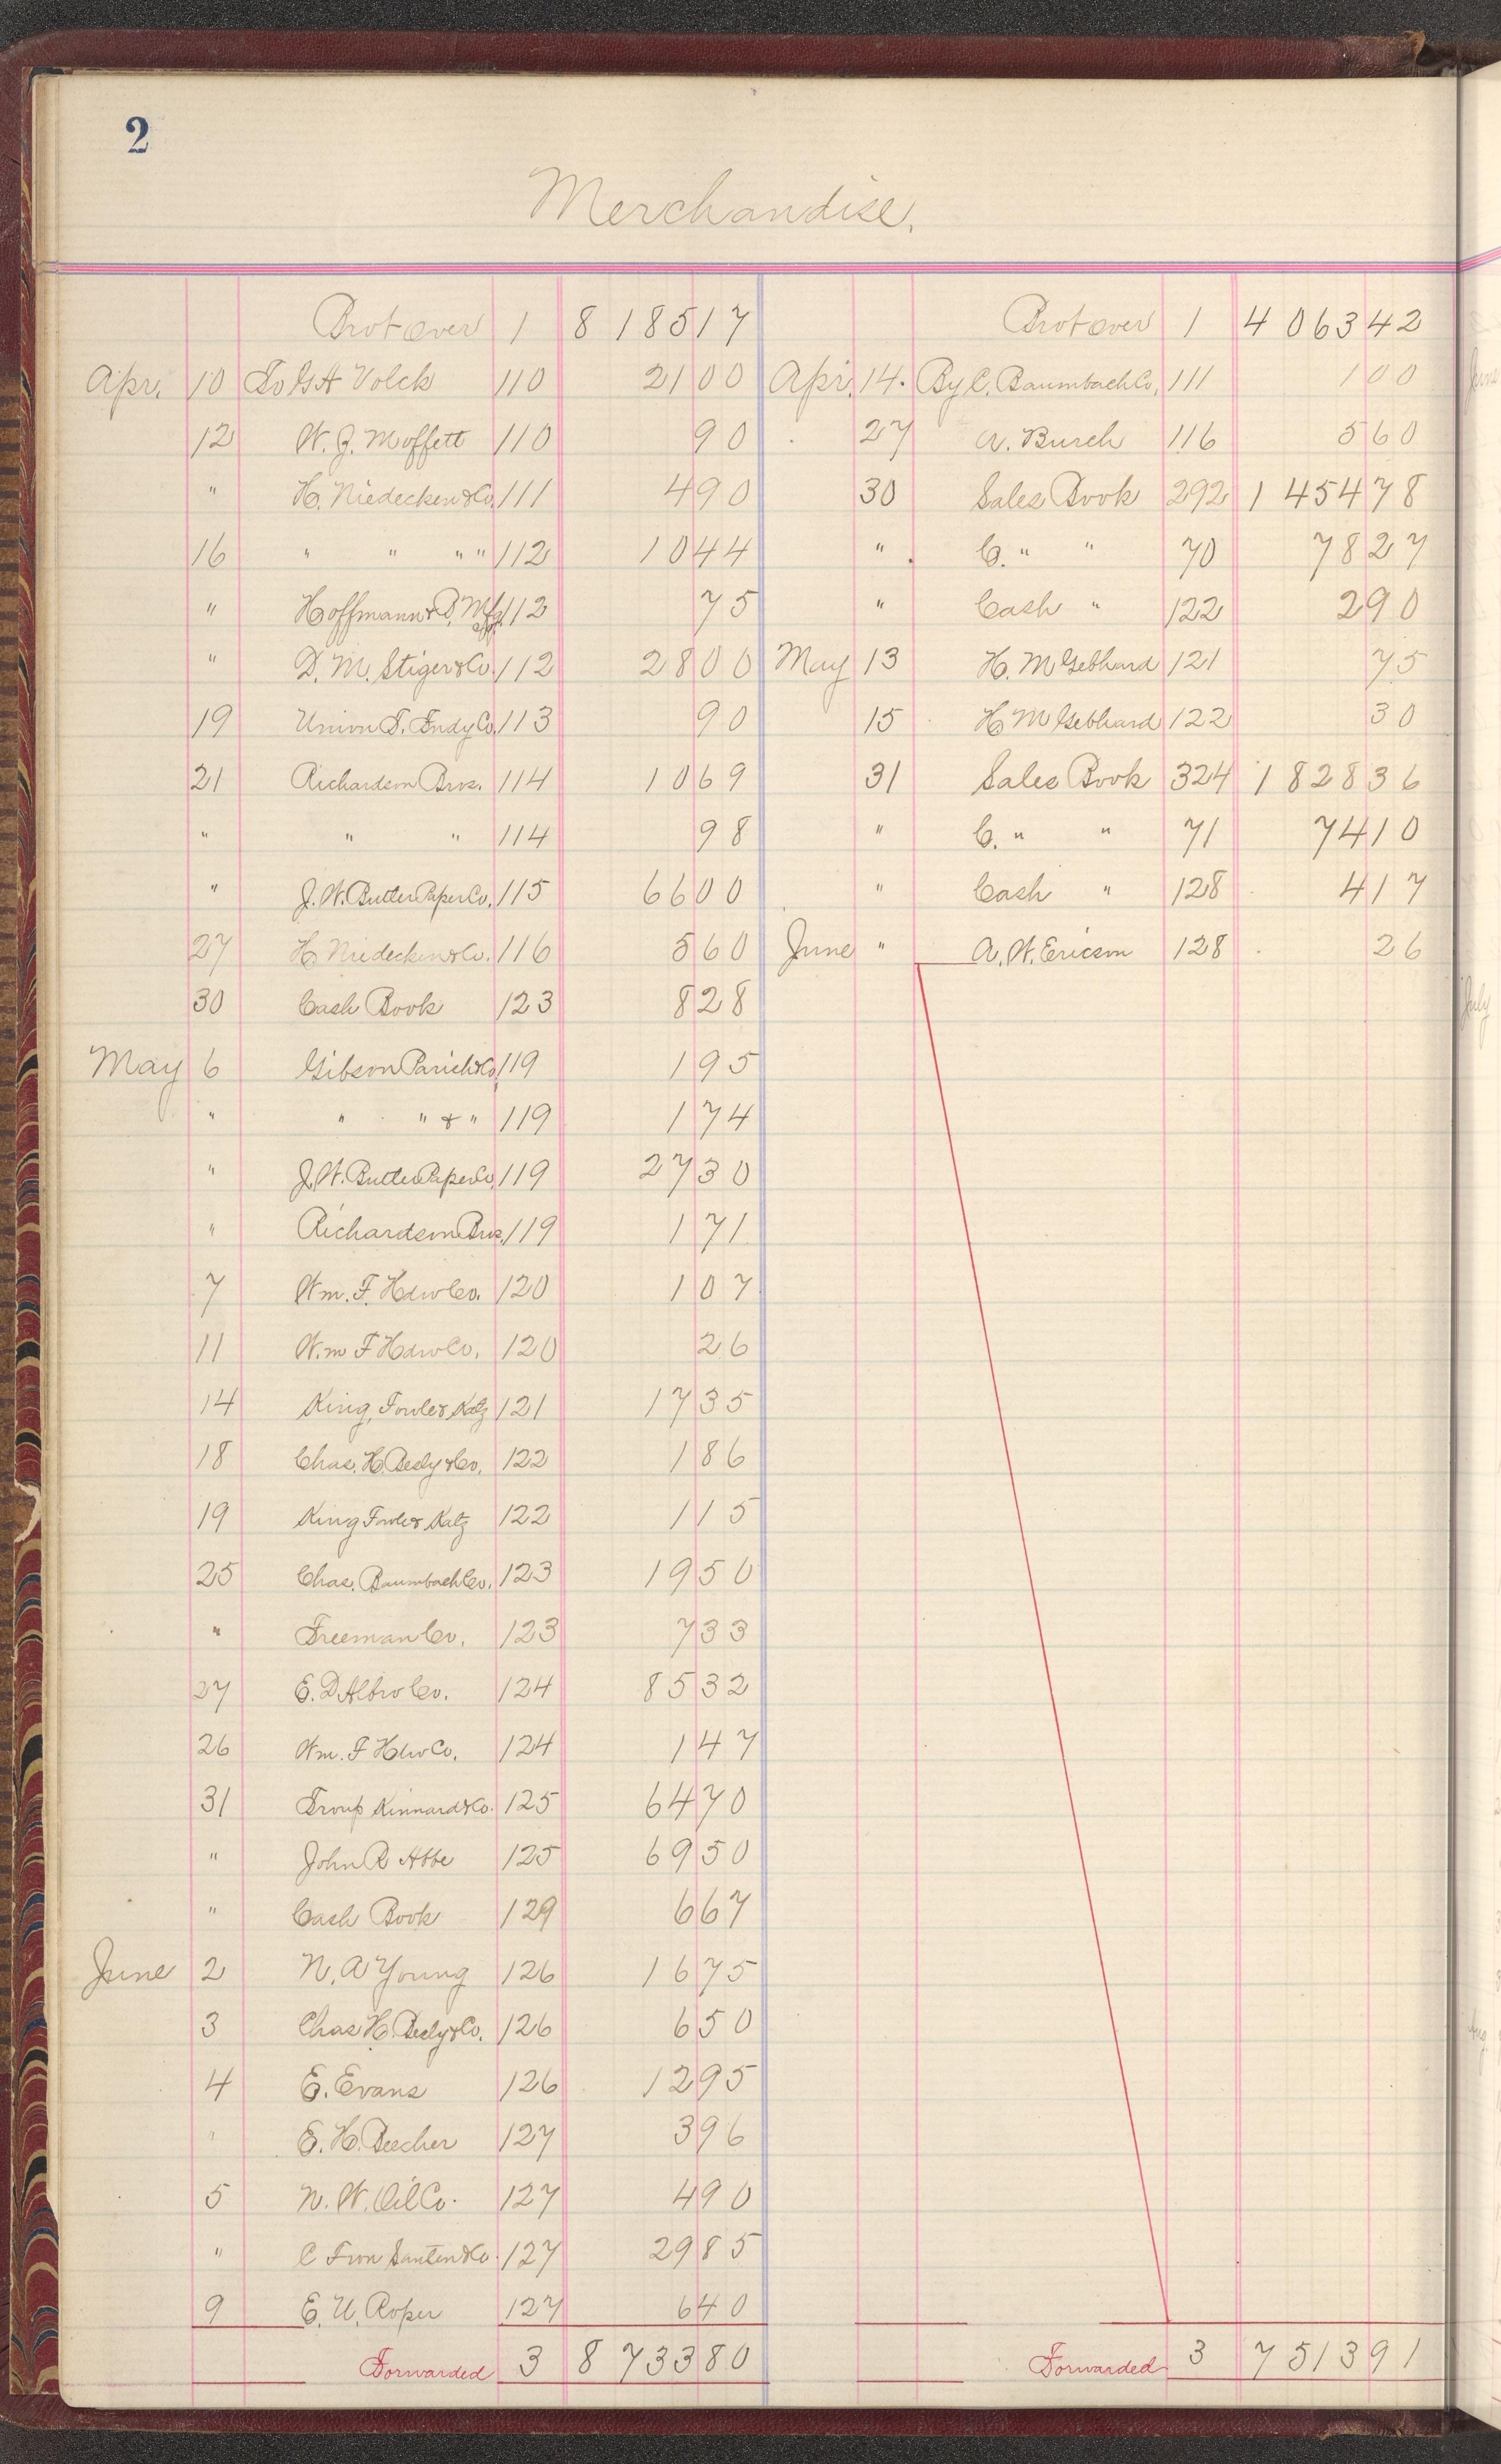 2
Merchandise.
Brot over 1 8 185 17 Brot over 1 4 063 42
Apr. 10 To G A Volck 110 21 00 Apr. 14. By C. Baumbach Co, 111 1 00
12 W. J. Moffett 110 90 27 A. Burch 116 5 60
" H. Niedecken & Co. 111 4 90 30 Sales Book 292 1 454 78
16 " " " " 112 10 44 " C. " " 70 78 27
" Hoffmann & B. Mfg 112 75 " Cash " 122 2 90
" D. M. Stiger & Co. 112 28 00 May 13 H. M Gebhard 121 75
19 Union S. Fndy Co. 113 90 15 H M Gebhard 122 30
21 Richardson Bros. 114 10 69 31 Sales Book 324 1 828 36
" " " 114 98 " C. " " 71 74 10
" J. W. Butler Paper Co. 115 66 00 " Cash " 128 4 17
27 H. Niedecken & Co. 116 5 60 June " A. W. Ericson 128 26
30 Cash Book 123 8 28
May 6 Gibson Parish & Co 119 1 95
" " " & " 119 1 74
" J. W. Butler Paper Co. 119 27 30
" Richardson Bros. 119 1 71
7 Wm. F. Hdw Co. 120 1 07
11 Wm F Hdw Co. 120 26
14 King, Fowle & Katz 121 17 35
18 Chas. H. Besly & Co. 122 1 86
19 King Fowle & Katz 122 1 15
25 Chas. Baumbach Co. 123 19 50
" Freeman Co. 123 7 33
27 E. D Albro Co. 124 85 32
26 Wm. F Hdw Co. 124 1 47
31 Troup Kinnard & Co. 125 64 70
" John R Abbe 125 69 50
" Cash Book 129 6 67
June 2 N. A Young 126 16 75
3 Chas H. Besly & Co. 126 6 50
4 E. Evans 126 12 95
" E. H. Beecher 127 3 96
5 N. W. Oil Co. 127 4 90
" C F von Santen & Co. 127 29 85
9 E. U. Roper 127 6 40
Forwarded 3 8 733 80 Forwarded 3 7 513 91